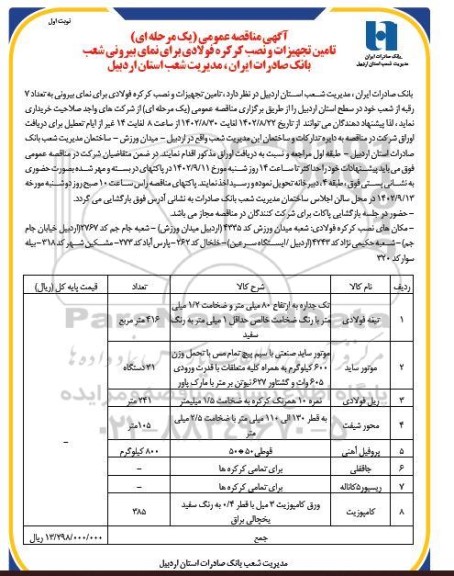 نوبت اول
بانک صادرات ایران
مدیریت شعب استان اردبیل
آگهی مناقصه عمومی (یک مرحله ای)
تامین تجهیزات و نصب کرکره فولادی برای نمای بیرونی شعب
بانک صادرات ایران ، مدیریت شعب استان اردبیل
بانک صادرات ایران ، مدیریت شعب استان اردبیل در نظر دارد، تامین تجهیزات و نصب کرکره فولادی برای نمای بیرونی به تعداد ۷
رقبه از شعب خود در سطح استان اردبیل را از طریق برگزاری مناقصه عمومی (یک مرحله ای) از شرکت های واجد صلاحیت خریداری
نماید ، لذا پیشنهاد دهندگان می توانند از تاریخ ۱۴۰۲/۸/۲۲ لغایت ۱۴۰۲/۸/۳۰ از ساعت ۸ لغایت ۱۴ غیر از ایام تعطیل برای دریافت
اوراق شرکت در مناقصه به دایره تدارکات و ساختمان این مدیریت شعب واقع در اردبیل - میدان ورزش - ساختمان مدیریت شعب بانک
صادرات استان اردبیل - طبقه اول مراجعه و نسبت به دریافت اوراق مذکور اقدام نمایند. در ضمن متقاضیان شرکت در مناقصه عمومی
فوق می باید پیشنهادات خود را حداکثر تا ساعت ۱۴ روز شنبه مورخ ۱۴۰۲/۹/۱۱ در پاکتهای در بسته و مهر شده بصورت حضوری
به نشانی پستی فوق، طبقه ۴، دبیرخانه تحویل نموده و رسید اخذ نمایند. پاکتهای مناقصه راس ساعت ۱۰ صبح روز دوشنبه مورخه
۱۴۰۲/۹/۱۳ در محل سالن اجلاس ساختمان مدیریت شعب بانک صادرات به نشانی آدرس فوق بازگشایی می گردد.
- حضور در جلسه بازگشایی پاکات برای شرکت کنندگان در مناقصه مجاز می باشد.
- مکان های نصب کرکره فولادی: شعبه میدان ورزش کد ۴۳۳۵ (اردبیل میدان ورزش) - شعبه جام جم کد ۳۷۶۷ (اردبیل خیابان جام
جم) - شعبه حکیمی نژاد کد ۴۲۴۳ (اردبیل / ایستگاه سرعین) - خلخال کد ۲۶۲ - پارس آباد کد ۲۷۳ - مشکین شهر کد ۳۱۸ - بیله
سوار کد ۳۲۰
ردیف نام کالا شرح کالا تعداد قیمت پایه کل (ریال)
۱ تیغه فولادی تک جداره به ارتفاع ۸۰ میلی متر و ضخامت ۱/۲ میلی متر با رنگ ضخامت خالص حداقل ۱ میلی متر به رنگ سفید ۴۱۶ متر مربع
۲ موتور ساید موتور ساید صنعتی با سیم پیچ تمام مس با تحمل وزن ۶۰۰ کیلوگرم به همراه کلیه متعلقات با قدرت ورودی ۶۰۵ وات و گشتاور ۶۲۷ نیوتن بر متر با مارک پاور ۳۱ دستگاه
۳ ریل فولادی نمره ۱۰ همرنگ کرکره به ضخامت ۱/۵ میلیمتر ۲۴۱ متر
۴ محور شیفت به قطر ۱۳۰ الی ۱۱۰ میلی متر با ضخامت ۲/۵ میلی متر ۱۰۵متر
۵ پروفیل آهنی قوطی ۵۰*۵۰ ۸۰۰ کیلوگرم
۶ جاقفلی برای تمامی کرکره ها -
۷ ریسیور۵کاناله برای تمامی کرکره ها -
۸ کامپوزیت ورق کامپوزیت ۳ میل با قطر ۰/۴ به رنگ سفید یخچالی براق ۳۸۵
-
جمع ۱۳/۳۹۸/۰۰۰/۰۰۰ ریال
مدیریت شعب بانک صادرات استان اردبیل